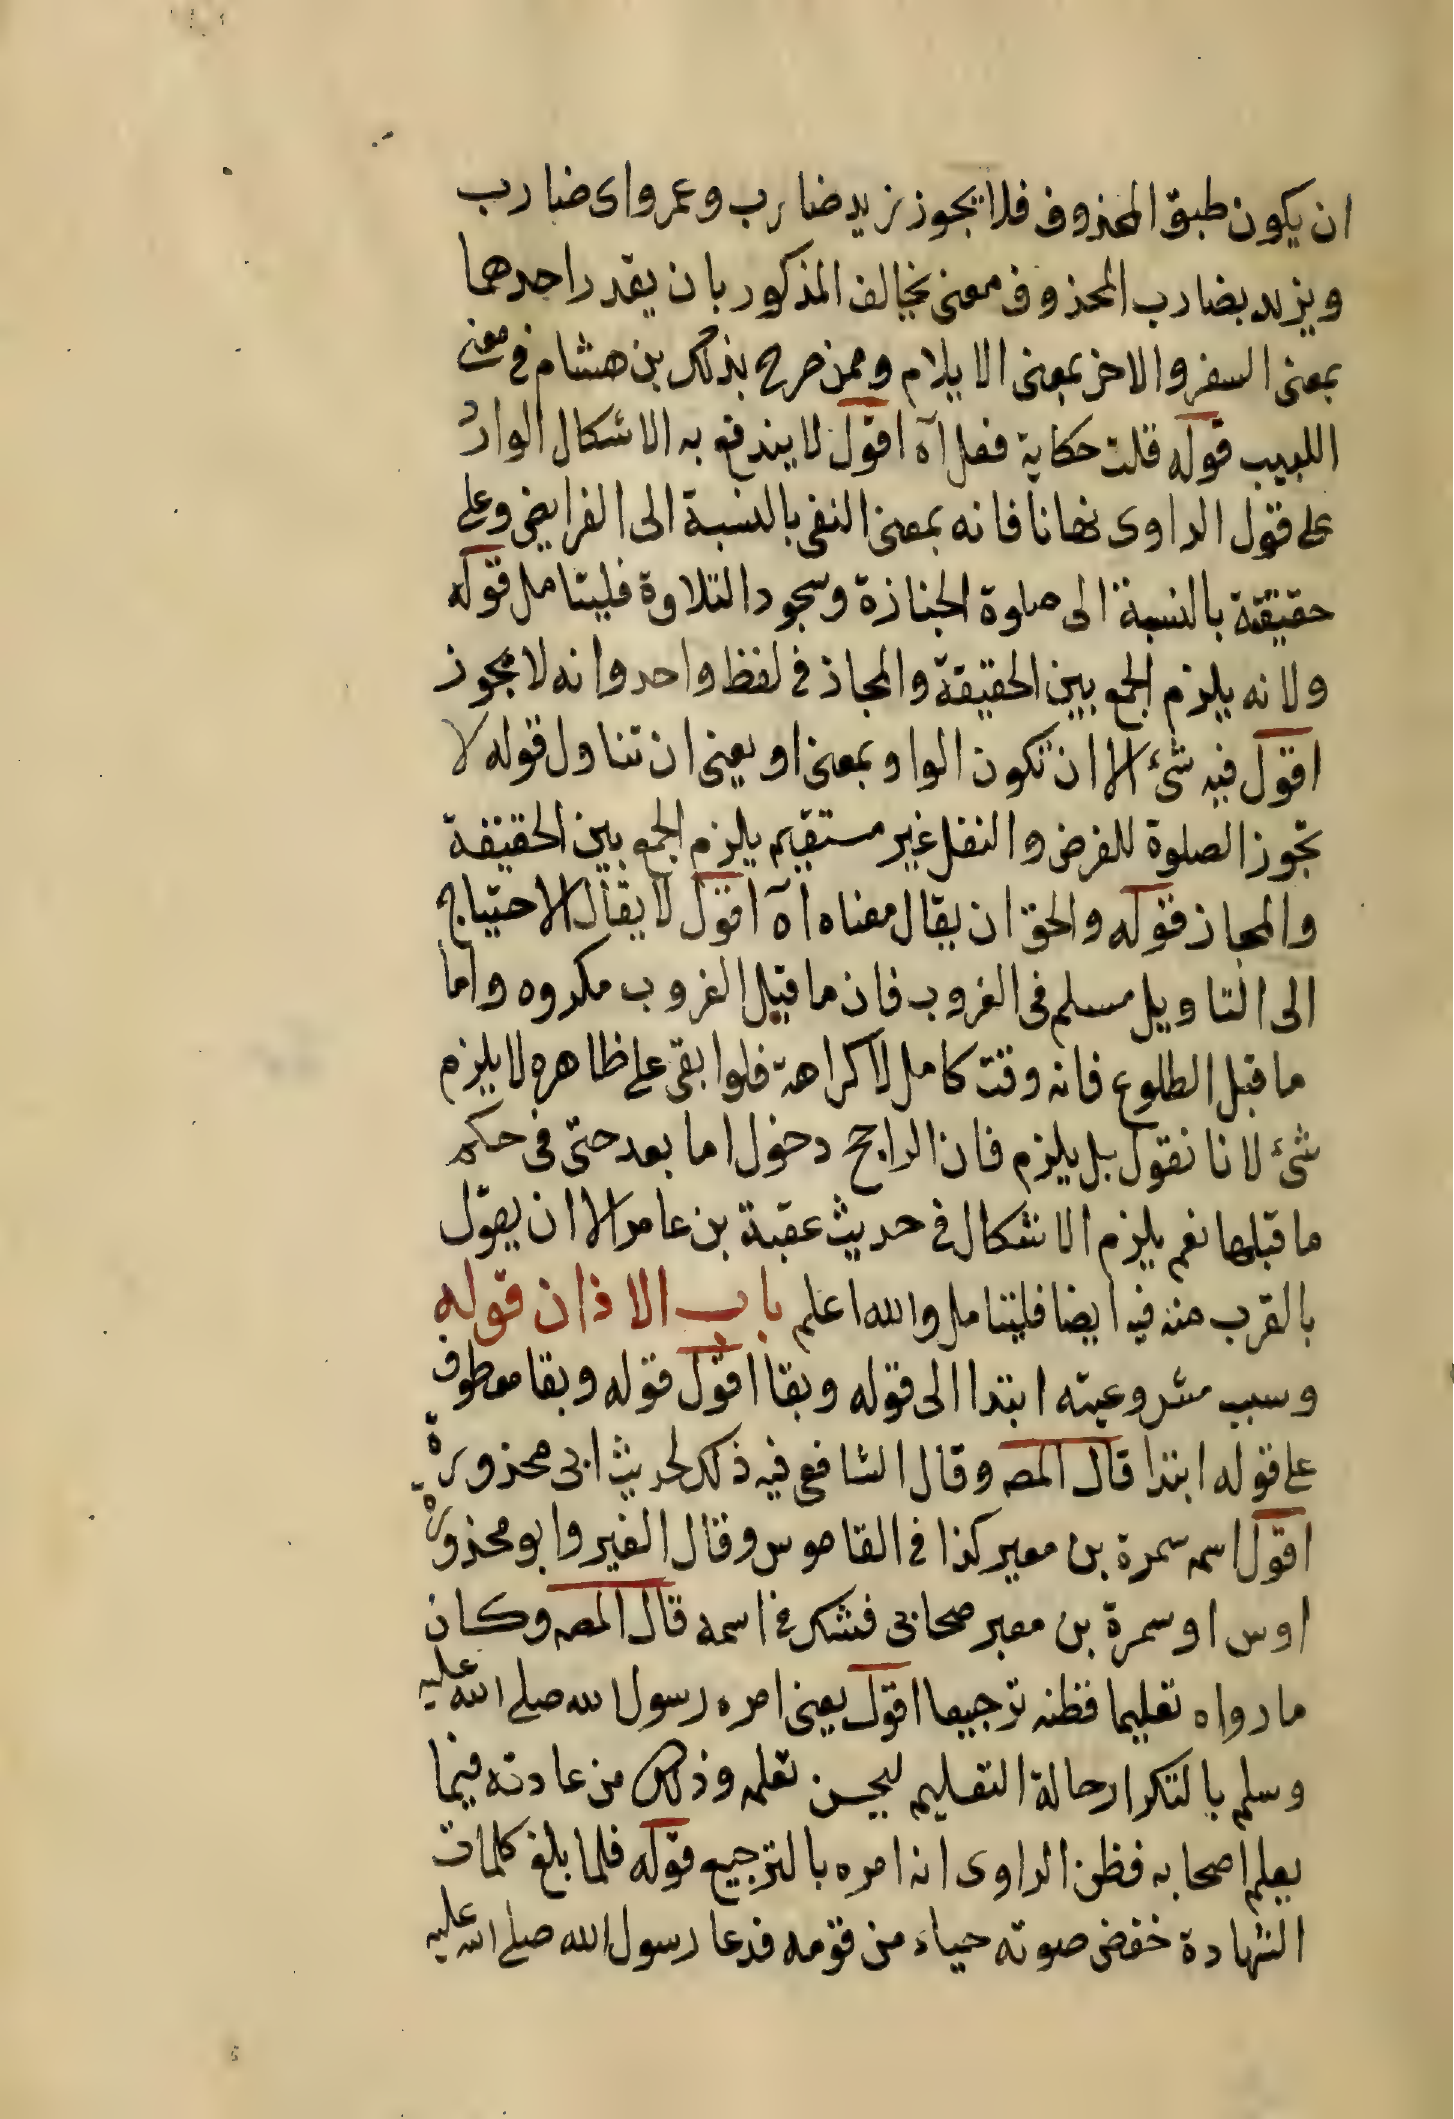 ان يكون طبق المحذوف فلا يجوز زيد ضارب وعمرو اى ضارب
ويزيد بضارب المحذوف معنى يخالف المذكور بان يقدر احدهما
بمعنى السفر والاخر بمعنى الايلام وممن صرح بذلك بن هشام فى مغنى
اللبيب قوله قلت حكاية فعل آه اقول لا يندفع به الاشكال الوارد
على قول الراوى نهانا فانه بمعنى النفى بالنسبة الى الفرايض وعلى
حقيقة بالنسبة الى صلوة الجنازة وسجود التلاوة فليتامل قوله
ولانه يلزم الجمع بين الحقيقة والمجاز فى لفظ واحد وانه لا يجوز
اقول فيه شئ الا ان تكون الواو بمعنى او يعنى ان تناول قوله لا
تجوز الصلوة للفرض والنفل غير مستقيم يلزم الجمع بين الحقيقة
والمجاز قوله والحق ان يقال معناه آه اقول لا يقال الاحتياج
الى التاويل مسلم فى الغروب فان ما قبل الغروب مكروه واما
ما قبل الطلوع فانه وقت كامل لا كراهة فلو ابقى على ظاهره لا يلزم
شئ لانا نقول بل يلزم فان الراجح دخول ما بعد حتى فى حكم
ما قبلها نعم يلزم الاشكال فى حديث عقبة بن عامر الا ان يقول
بالقرب منه فيه ايضا فليتامل والله اعلم باب الاذان قوله
وسبب مشروعيته ابتدا الى قوله وبقا اقول قوله وبقا معطوف
على قوله ابتدا قال المصـ وقال الشافعى فيه ذلك لحديث ابى محذورة
اقول اسمه سمرة بن معير كذا فى القاموس وقال الغير وابو محذورة
اوس او سمرة بن معير صحابى فشك فى اسمه قال المصـ وكان
ما رواه تعليما فظنه ترجيعا اقول يعنى امره رسول الله صلى الله عليه
وسلم بالتكرار حالة التعليم ليحسن تعلمه وذلك من عادته فيما
يعلم اصحابه فظن الراوى انه امره بالترجيع قوله فلما بلغ كلمات
الشهادة خفض صوته حياء من قومه فدعا رسول الله صلى الله عليه